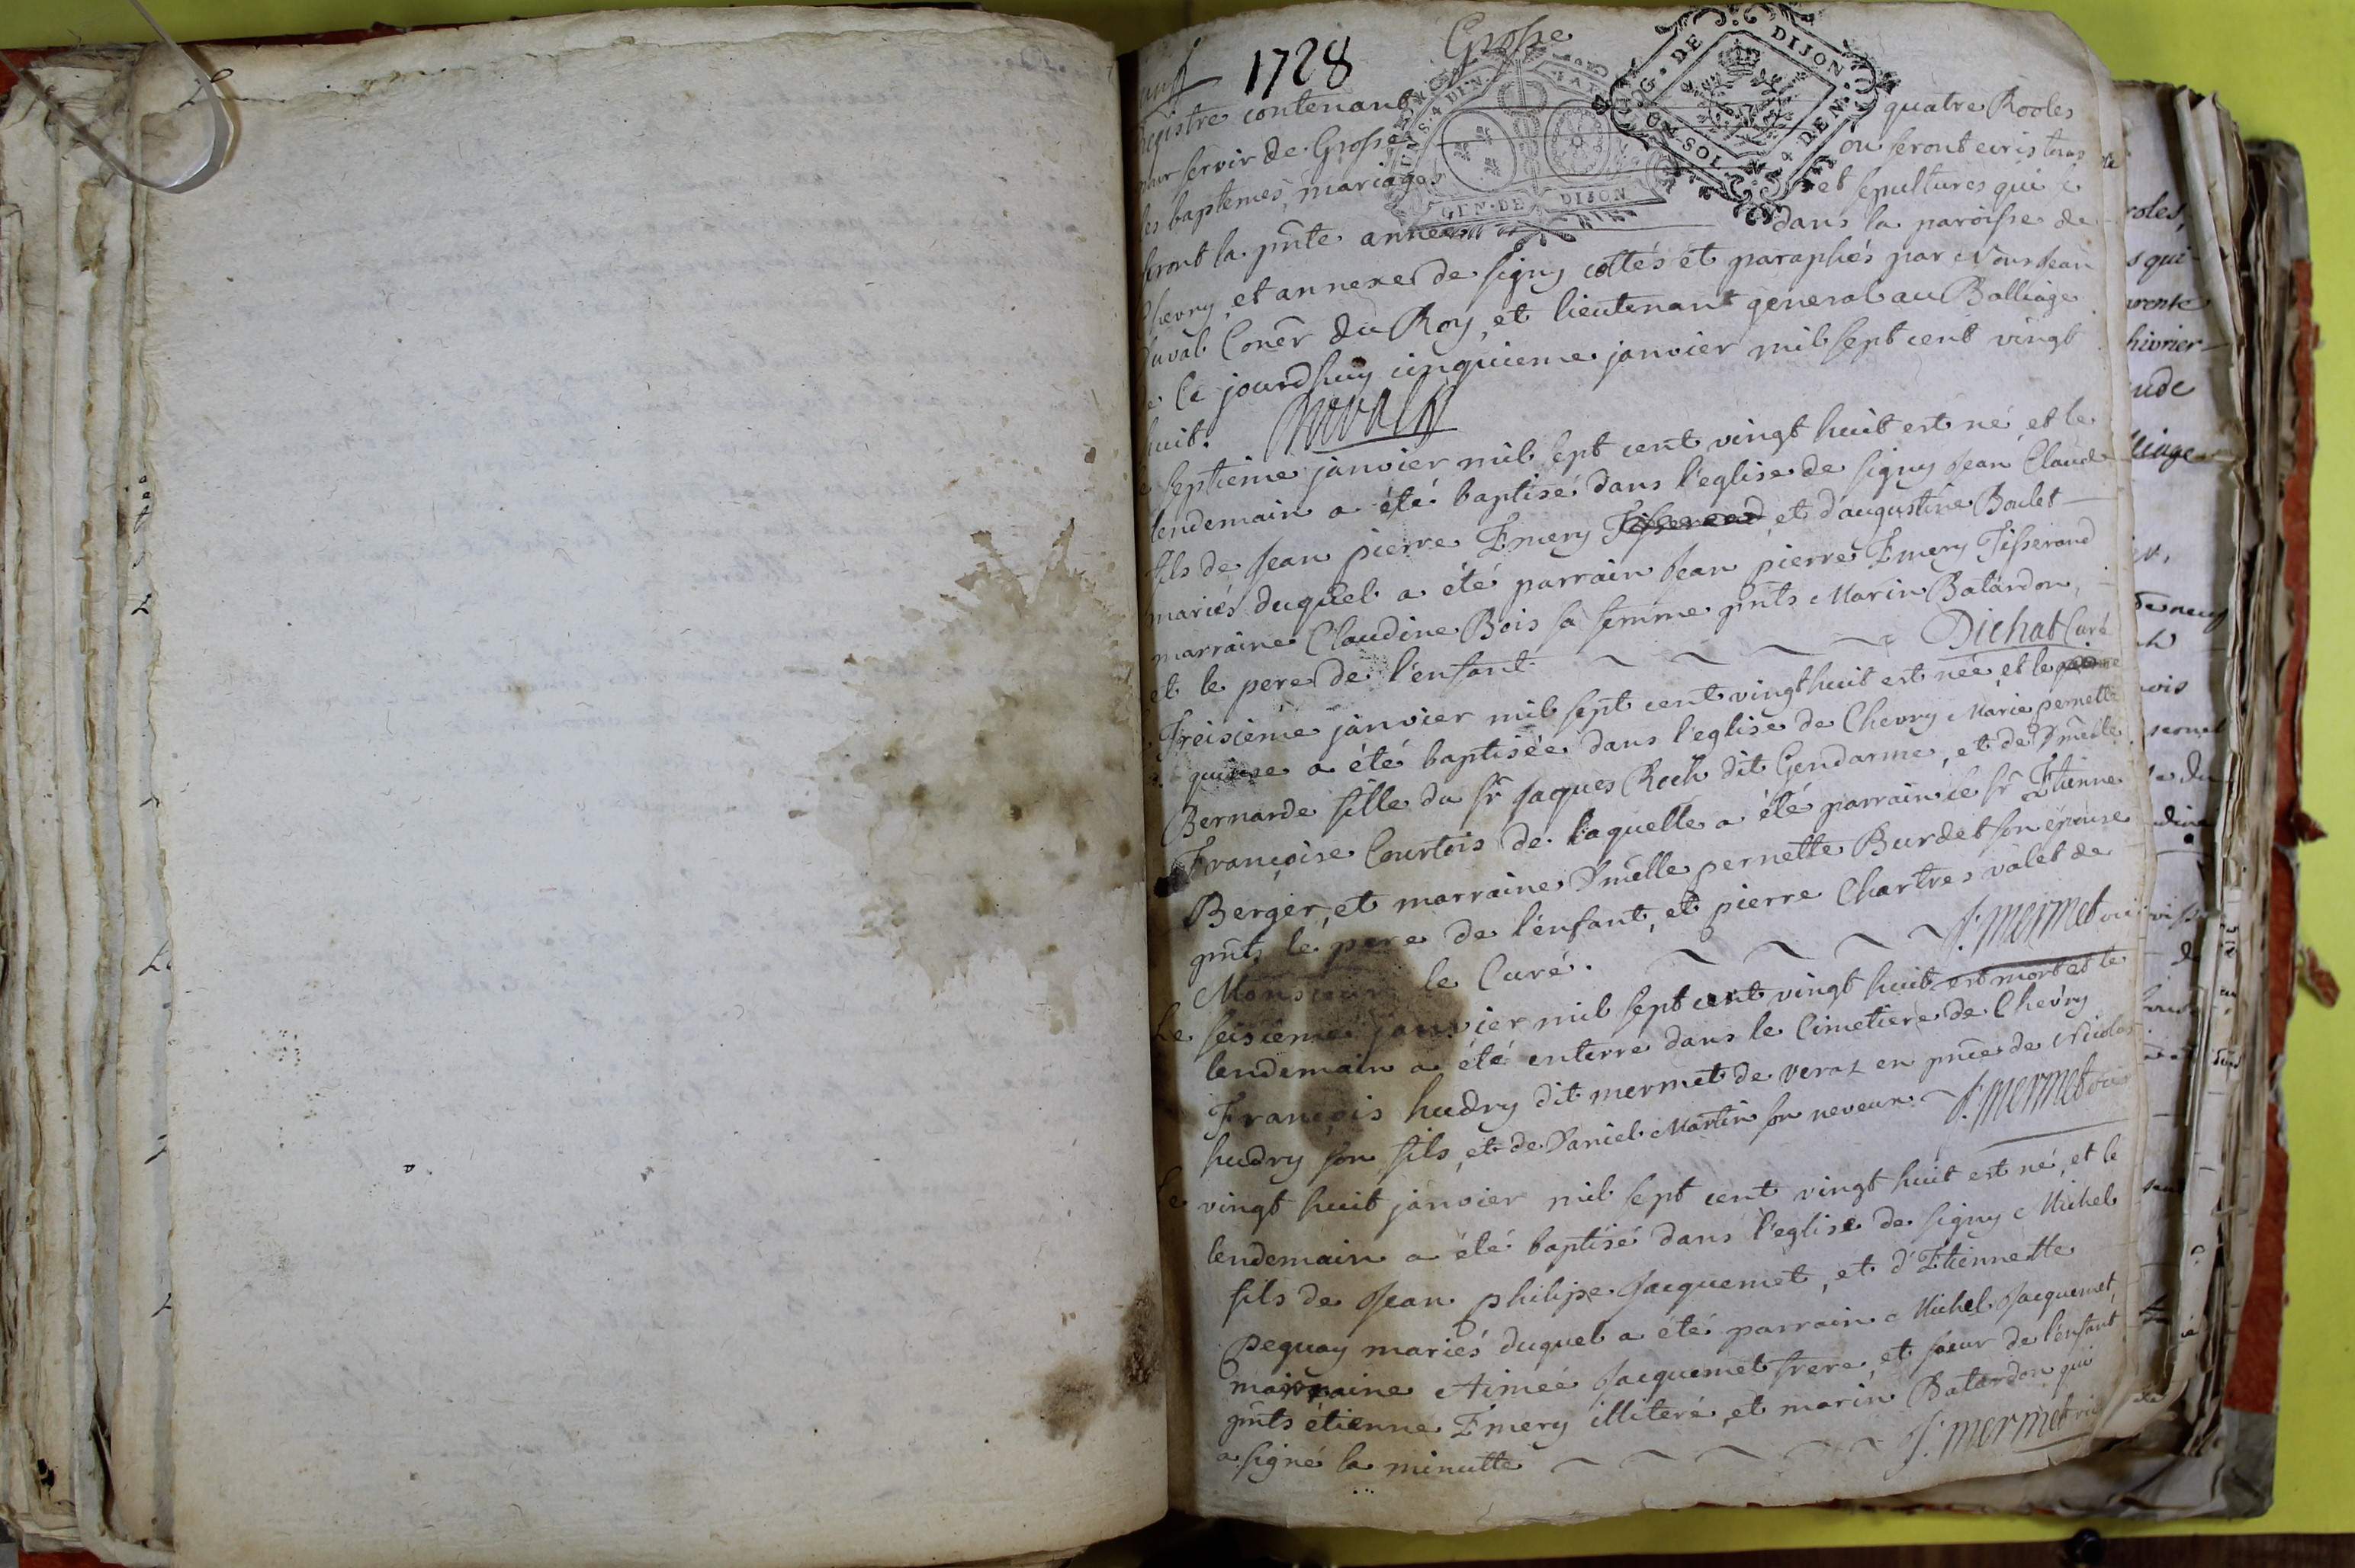 1728
Grosse
GEN. DE DIJON
G. DE DIJON
UN SOL 4 DEN.
Registre contenant quatre Rooles
pour servir de Grosse ou seront ecris tous
les baptemes, mariages et sepultures qui se
feront la pnte année dans la paroisse de
Chevry, et annexe de Signy cottés et paraphés par Nous Jean
Duval Conêr du Roy, et lieutenant general au Balliage
de ce jourdhuy cinquieme janvier mil sept cent vingt
huit. Duval
Le septieme janvier mil sept cent vingt huit est né, et le
lendemain a été baptisé dans l'eglise de Signy Jean Claude
fils de Jean pierre Emery Tisserand, et d'augustine Boulet
mariés duquel a été parrain Jean pierre Emery Tisserand
marraine Claudine Bois sa femme pnts Marin Batardon,
et le pere de l'enfant Dichat Curé
Treisieme janvier mil sept cent vingt huit est née, et le
quinse a été baptisée dans l'eglise de Chevry Marie pernette
Bernarde fille du Sr Jaques Roch dit Gendarme, et de Dmelle
Françoise Courtois de laquelle a été parrain le Sr Etienne
Berger, et marraine Dmelle pernette Burdet son épouse
pnts le pere de l'enfant, et pierre Chartres valet de
Monsieur le Curé. J. Mermet vic
Le seisieme janvier mil sept cent vingt huit est mort et le
lendemain a été enterré dans le Cimetiere de Chevry
François hudry dit mermet de veraz en pnce de Nicolas
hudry son fils, et de Daniel Martin son neveux. J. Mermet vic
Le vingt huit janvier mil sept cent vingt huit est né, et le
lendemain a été baptisé dans l'eglise de Signy Michel
fils de Jean philipe Jacquemet, et d'Etiennette
Pequay mariés duquel a été parrain Michel Jacquemet,
marraine Aimée Jacquemet frere, et soeur de l'enfant
pnts étienne Emery illiteré, et marin Batardon qui
a signé la minutte J. Mermet vic